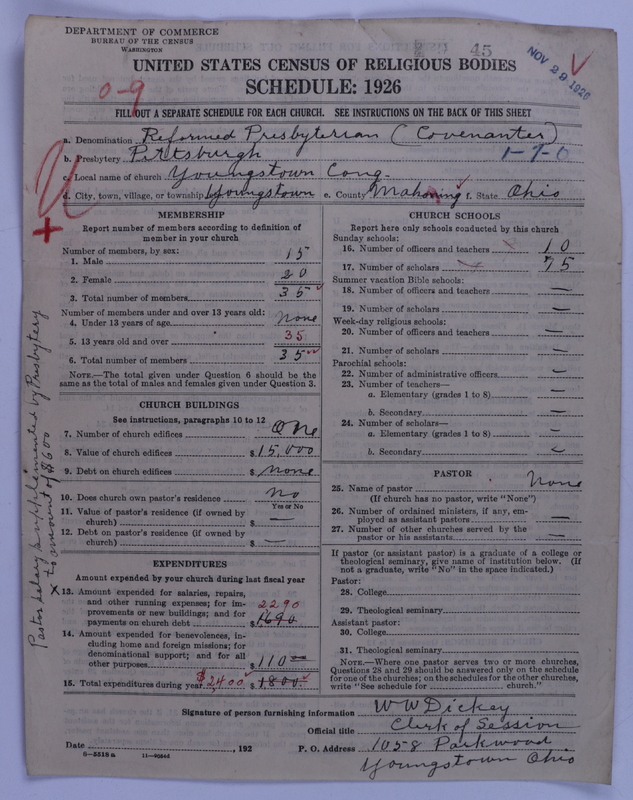 DEPARTMENT OF COMMERCE
BUREAU OF THE CENSUS
WASHINGTON
45
NOV 29 1926
UNITED STATES CENSUS OF RELIGIOUS BODIES
SCHEDULE: 1926
0-9
FILL OUT A SEPARATE SCHEDULE FOR EACH CHURCH. SEE INSTRUCTIONS ON THE BACK OF THIS SHEET
a. Denomination Reformed Presbyterian (Covenanter)
b. Presbytery Pittsburgh 1-7-0
c. Local name of church Youngstown Cong.
d. City, town, village, or township Youngstown e. County Mahoning f. State Ohio
MEMBERSHIP
Report number of members according to definition of
member in your church
Number of members, by sex:
1. Male 15
2. Female 20
3. Total number of members 35
Number of members under and over 13 years old:
4. Under 13 years of age None
5. 13 years old and over 35
6. Total number of members 35
NOTE.—The total given under Question 6 should be the
same as the total of males and females given under Question 3.
CHURCH BUILDINGS
See instructions, paragraphs 10 to 12
7. Number of church edifices One
8. Value of church edifices $15,000
9. Debt on church edifices $ None
10. Does church own pastor's residence No
Yes or No
11. Value of pastor's residence (if owned by
church) $ —
12. Debt on pastor's residence (if owned by
church) $ —
EXPENDITURES
Amount expended by your church during last fiscal year
X 13. Amount expended for salaries, repairs,
and other running expenses; for im- 2290
provements or new buildings; and for
payments on church debt $1690
14. Amount expended for benevolences, in-
cluding home and foreign missions; for
denominational support; and for all
other purposes $110
15. Total expenditures during year $2400 $1800
Pastor salary supplemented by Presbytery
to amount of $600
CHURCH SCHOOLS
Report here only schools conducted by this church
Sunday schools:
16. Number of officers and teachers 10
17. Number of scholars 75
Summer vacation Bible schools:
18. Number of officers and teachers —
19. Number of scholars —
Week-day religious schools:
20. Number of officers and teachers —
21. Number of scholars —
Parochial schools:
22. Number of administrative officers —
23. Number of teachers—
a. Elementary (grades 1 to 8) —
b. Secondary —
24. Number of scholars—
a. Elementary (grades 1 to 8) —
b. Secondary —
PASTOR
25. Name of pastor None
(If church has no pastor, write "None")
26. Number of ordained ministers, if any, em-
ployed as assistant pastors —
27. Number of other churches served by the
pastor or his assistants —
If pastor (or assistant pastor) is a graduate of a college or
theological seminary, give name of institution below. (If
not a graduate, write "No" in the space indicated.)
Pastor:
28. College
29. Theological seminary
Assistant pastor:
30. College
31. Theological seminary
NOTE.—Where one pastor serves two or more churches,
Questions 28 and 29 should be answered only on the schedule
for one of the churches; on the schedules for the other churches,
write "See schedule for church."
Signature of person furnishing information W W Dickey
Official title Clerk of Session
Date , 192 P. O. Address 1058 Parkwood
8—5518a 11—9064d Youngstown Ohio